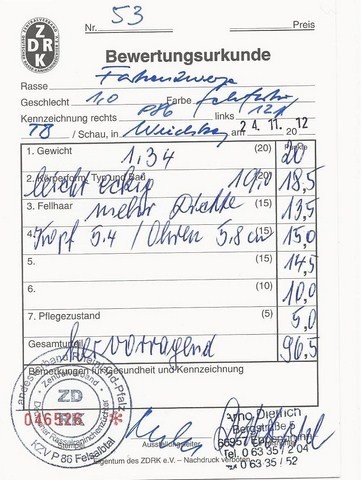 ZENTRALVERBAND
ZDRK
Nr. 53 Preis
Bewertungsurkunde
Rasse Farbenzwerge
Geschlecht 1,0 Farbe
Kennzeichnung rechts P86 links 121
TB / Schau, in am 24. 11. 2012
1. Gewicht 1,34 (20) 20
2. Körperform, Typ und Bau (20) 18,5
leicht eckig 19,0
3. Fellhaar mehr Dichte (15) 13,5
4. Kopf 5.4 / Ohren 5.8 cm (15) 15,0
5. (15) 14,5
6. (10) 10,0
7. Pflegezustand (5) 5,0
Gesamturteil hervorragend 96,5
Bemerkungen für Gesundheit und Kennzeichnung
Landesverband Rheinland-Pfalz
Zentralverband
ZD
RK
Deutscher Rassekaninchenzüchter
046526 *
Stempel
KZV P 86 Felsalbtal
Arno Dietrich
Bergstraße 5
66957 Eppenbrunn
Tel. 0 63 35 / 2 04
Fax 0 63 35 / 52
Ausstellungsleiter
Eigentum des ZDRK e.V. – Nachdruck verboten